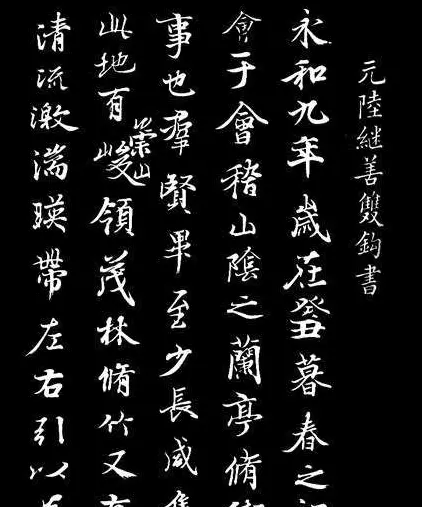 元陸継善雙鈎書
永和九年歲在癸丑暮春之
會于會稽山陰之蘭亭脩
事也羣賢畢至少長咸
此地有崇山峻領茂林脩竹又
清流激湍暎帶左右引以